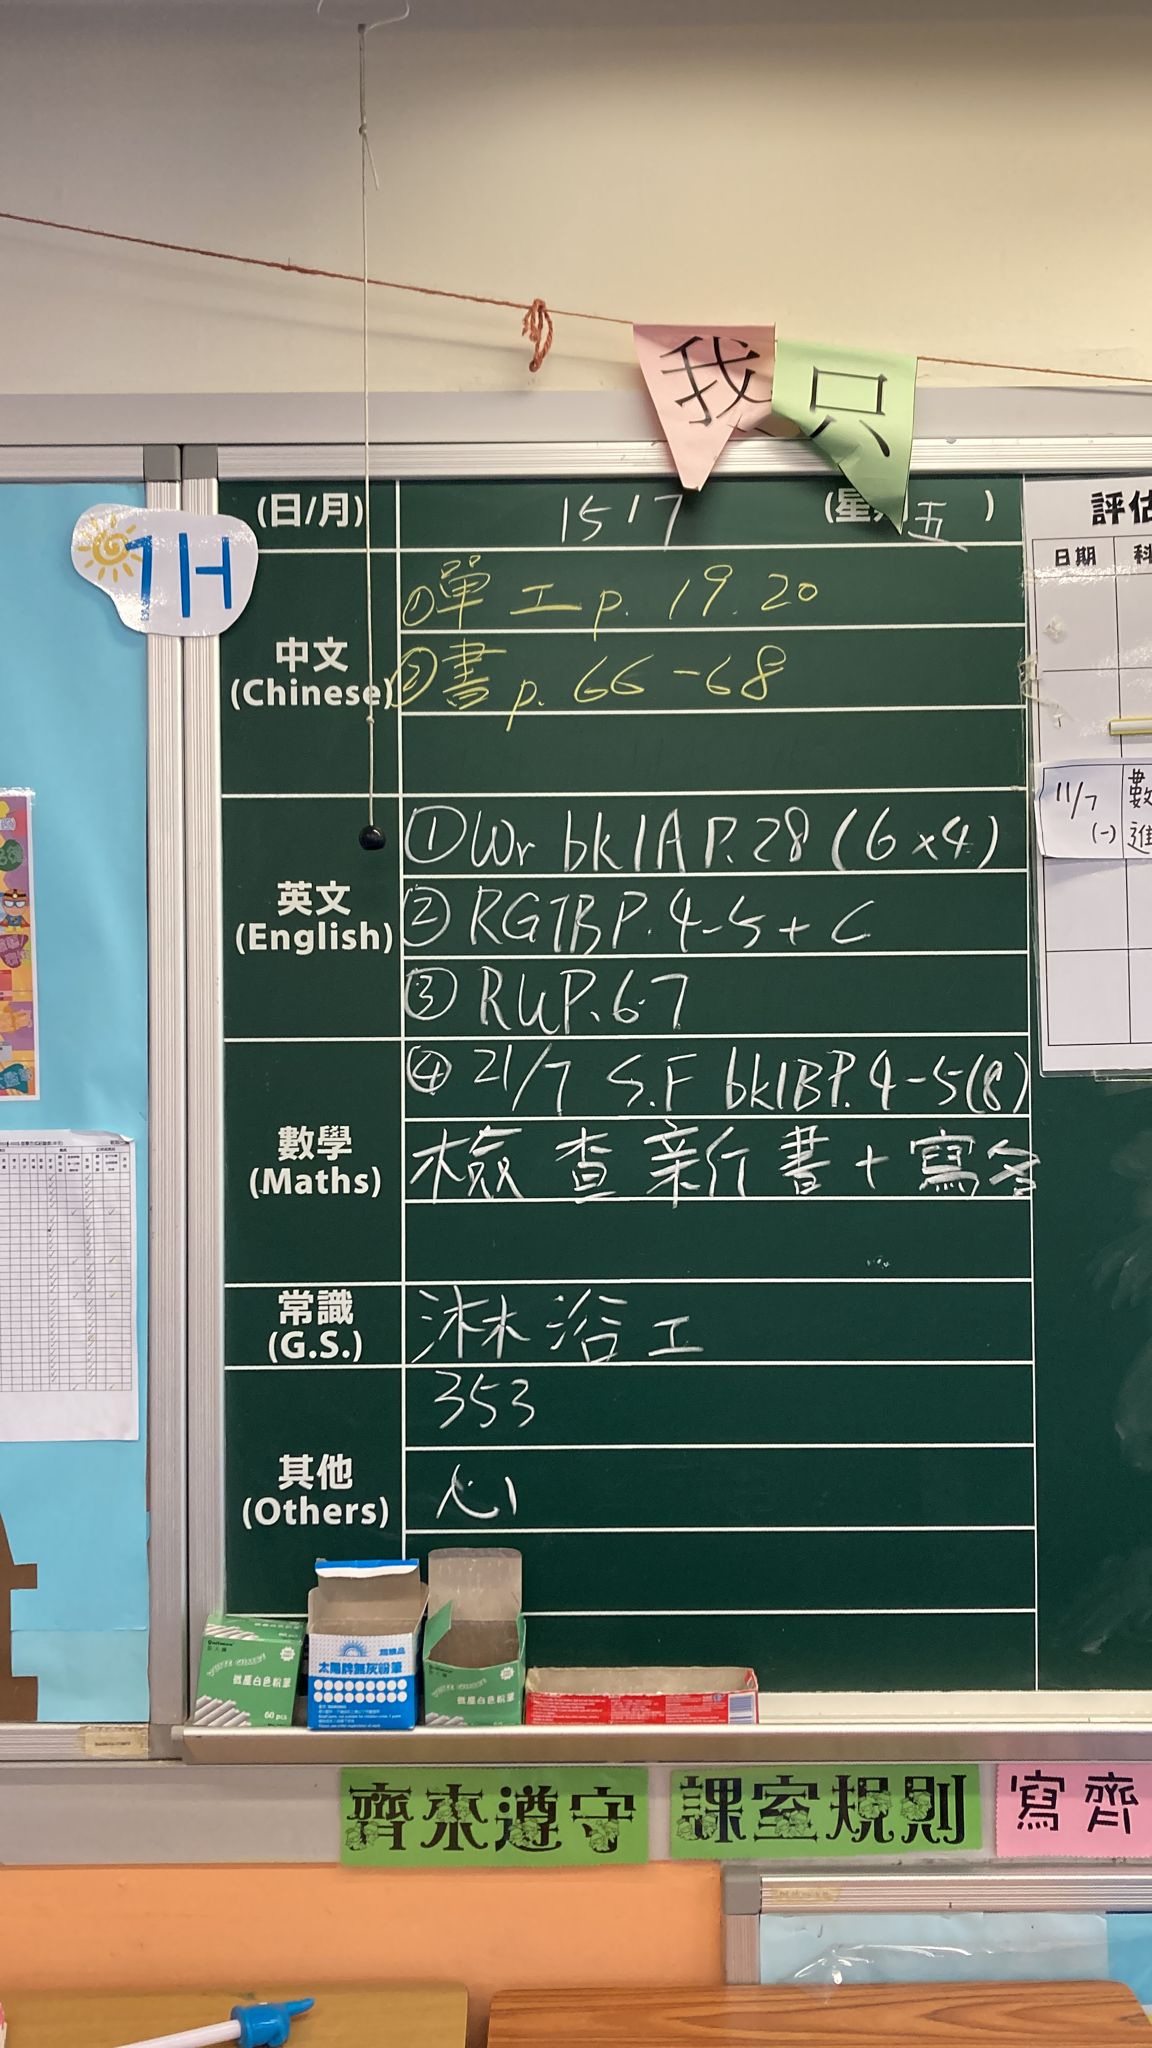 我 只
(日/月) 15 / 7 (星期 五 )
1H
中文
(Chinese)
①單工 p. 19. 20
②書 p. 66-68
英文
(English)
①Wr bk 1A P.28 (6×4)
②RGTB P.4-5+C
③RU P.6-7
④21/7 S.F bk1B P.4-5(8)
數學
(Maths)
檢查新書+寫名
常識
(G.S.)
沐浴工
其他
(Others)
353
心1
評估
日期 科
11/7 數
(一) 進
微塵白色粉筆
60 pcs
太陽牌無灰粉筆
微塵白色粉筆
齊來遵守 課室規則 寫齊